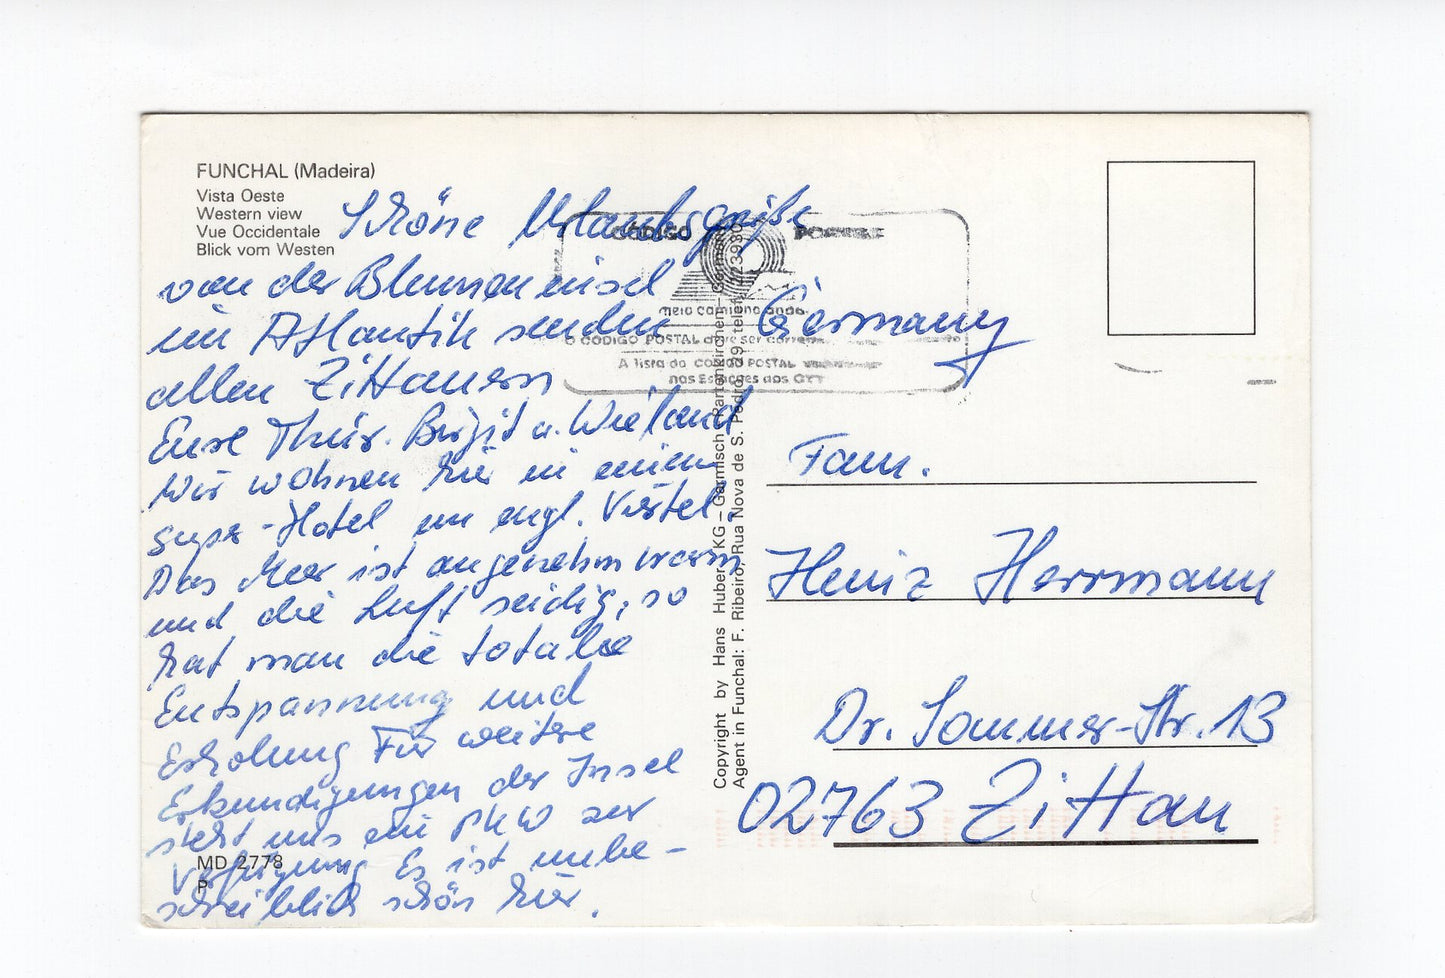 FUNCHAL (Madeira)
Vista Oeste
Western view
Vue Occidentale
Blick vom Westen
Schöne Urlaubsgrüße
von der Blumeninsel
im Atlantik senden
allen Zittauern
Eure Thür. Birgit u. Wieland
Wir wohnen hier in einem
super-Hotel im engl. Viertel.
Das Meer ist angenehm warm
und die Luft seidig, so
hat man die totale
Entspannung und
Erholung Für weitere
Erkundigungen der Insel
steht uns ein PKW zur
Verfügung Es ist unbe-
schreiblich schön hier.
MD 2778
P
CÓDIGO POSTAL
meio caminho andado
O CÓDIGO POSTAL deve ser
A lista do CÓDIGO POSTAL
nas Estações dos CTT
Copyright by Hans Huber KG – Garmisch-Partenkirchen – Germany
Agent in Funchal: F. Ribeiro, Rua Nova de S. Pedro, 39, telef. 23930
Germany
Fam.
Heinz Herrmann
Dr. Sommer-Str. 13
02763 Zittau